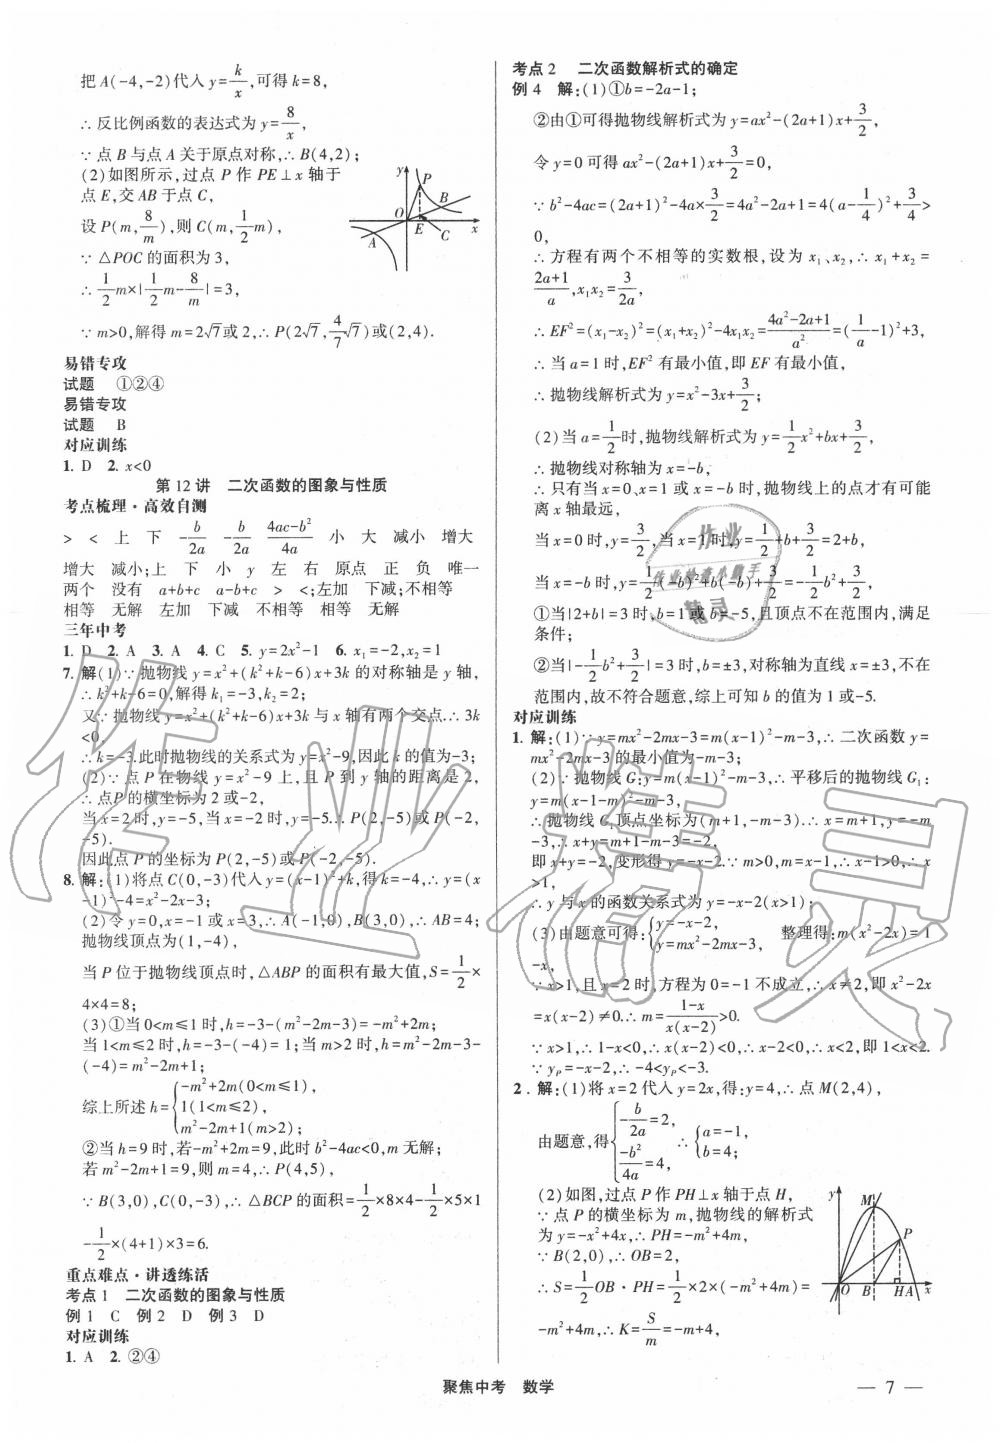 把A(-4,-2)代入y=k/x,可得k=8,
∴反比例函数的表达式为y=8/x,
∵点B与点A关于原点对称,∴B(4,2);
(2)如图所示,过点P作PE⊥x轴于
点E,交AB于点C,
设P(m,8/m),则C(m,1/2m),
∵△POC的面积为3,
∴1/2m×|1/2m-8/m|=3,
∵m>0,解得m=2√7或2,∴P(2√7,4/7√7)或(2,4).
y
P
B
O
E
C
x
A
易错专攻
试题 ①②④
易错专攻
试题 B
对应训练
1. D 2. x<0
第12讲 二次函数的图象与性质
考点梳理·高效自测
> < 上 下 -b/2a -b/2a 4ac-b²/4a 小 大 减小 增大
增大 减小;上 下 小 y 左 右 原点 正 负 唯一
两个 没有 a+b+c a-b+c > <;左加 下减;不相等
相等 无解 左加 下减 不相等 相等 无解
三年中考
1. D 2. A 3. A 4. C 5. y=2x²-1 6. x₁=-2,x₂=1
7. 解(1)∵抛物线y=x²+(k²+k-6)x+3k的对称轴是y轴,
∴k²+k-6=0,解得k₁=-3,k₂=2;
又∵抛物线y=x²+(k²+k-6)x+3k与x轴有两个交点∴3k
<0,
∴k=-3.此时抛物线的关系式为y=x²-9,因此k的值为-3;
(2)∵点P在物线y=x²-9上,且P到y轴的距离是2,
∴点P的横坐标为2或-2,
当x=2时,y=-5,当x=-2时,y=-5.∴P(2,-5)或P(-2,
-5).
因此点P的坐标为P(2,-5)或P(-2,-5).
8. 解:(1)将点C(0,-3)代入y=(x-1)²+k,得k=-4,∴y=(x
-1)²-4=x²-2x-3;
(2)令y=0,x=-1或x=3,∴A(-1,0),B(3,0),∴AB=4;
抛物线顶点为(1,-4),
当P位于抛物线顶点时,△ABP的面积有最大值,S=1/2×
4×4=8;
(3)①当0<m≤1时,h=-3-(m²-2m-3)=-m²+2m;
当1<m≤2时,h=-3-(-4)=1;当m>2时,h=m²-2m-3-
(-4)=m²-2m+1,
综上所述h={-m²+2m(0<m≤1),
1(1<m≤2),
m²-2m+1(m>2);
②当h=9时,若-m²+2m=9,此时b²-4ac<0,m无解;
若m²-2m+1=9,则m=4,∴P(4,5),
∵B(3,0),C(0,-3),∴△BCP的面积=1/2×8×4-1/2×5×1
-1/2×(4+1)×3=6.
重点难点·讲透练活
考点1 二次函数的图象与性质
例1 C 例2 D 例3 D
对应训练
1. A 2. ②④
考点2 二次函数解析式的确定
例4 解:(1)①b=-2a-1;
②由①可得抛物线解析式为y=ax²-(2a+1)x+3/2,
令y=0可得ax²-(2a+1)x+3/2=0,
∵b²-4ac=(2a+1)²-4a×3/2=4a²-2a+1=4(a-1/4)²+3/4>
0,
∴方程有两个不相等的实数根,设为x₁、x₂,∴x₁+x₂=
2a+1/a,x₁x₂=3/2a,
∴EF²=(x₁-x₂)²=(x₁+x₂)²-4x₁x₂=4a²-2a+1/a²=(1/a-1)²+3,
∴当a=1时,EF²有最小值,即EF有最小值,
∴抛物线解析式为y=x²-3x+3/2;
(2)当a=1/2时,抛物线解析式为y=1/2x²+bx+3/2,
∴抛物线对称轴为x=-b,
∴只有当x=0、x=1或x=-b时,抛物线上的点才有可能
离x轴最远,
当x=0时,y=3/2,当x=1时,y=1/2+b+3/2=2+b,
当x=-b时,y=1/2(-b)²+b(-b)+3/2=-1/2b²+3/2,
①当|2+b|=3时,b=1或b=-5,且顶点不在范围内,满足
条件;
②当|-1/2b²+3/2|=3时,b=±3,对称轴为直线x=±3,不在
范围内,故不符合题意,综上可知b的值为1或-5.
对应训练
1. 解:(1)∵y=mx²-2mx-3=m(x-1)²-m-3,∴二次函数y=
mx²-2mx-3的最小值为-m-3;
(2)∵抛物线G:y=m(x-1)²-m-3,∴平移后的抛物线G₁:
y=m(x-1-m)²-m-3,
∴抛物线G₁顶点坐标为(m+1,-m-3):∴x=m+1,y=-m
-3,∴x+y=m+1-m-3=-2,
即x+y=-2,变形得y=-x-2.∵m>0,m=x-1,∴x-1>0,∴x
>1,
∴y与x的函数关系式为y=-x-2(x>1);
(3)由题意可得:{y=-x-2,
y=mx²-2mx-3, 整理得:m(x²-2x)=1
-x,
∵x>1,且x=2时,方程为0=-1不成立,∴x≠2,即x²-2x
=x(x-2)≠0.∴m=1-x/x(x-2)>0.
∵x>1,∴1-x<0,∴x(x-2)<0,∴x-2<0,∴x<2,即1<x<2.
∵yₚ=-x-2,∴-4<yₚ<-3.
2. 解:(1)将x=2代入y=2x,得:y=4,∴点M(2,4),
由题意,得{-b/2a=2,
-b²/4a=4, ∴{a=-1,
b=4;
(2)如图,过点P作PH⊥x轴于点H,
∵点P的横坐标为m,抛物线的解析式
为y=-x²+4x,∴PH=-m²+4m,
∵B(2,0),∴OB=2,
∴S=1/2OB·PH=1/2×2×(-m²+4m)=
-m²+4m,∴K=S/m=-m+4,
y
M
P
O
B
H
A
x
聚焦中考 数学
— 7 —
作业精灵